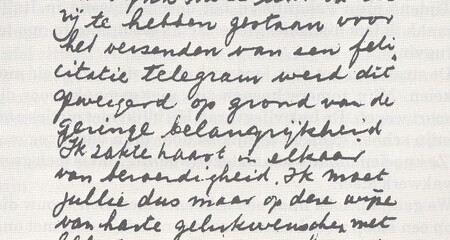 rij te hebben gestaan voor
het versenden van een feli
citatie telegram werd dit
geweigerd op grond van de
geringe belangrijkheid
Ik zakte haast in elkaar
van beroerdigheid. Ik moet
jullie dus maar op deze wijze
van harte gelukwenschen met